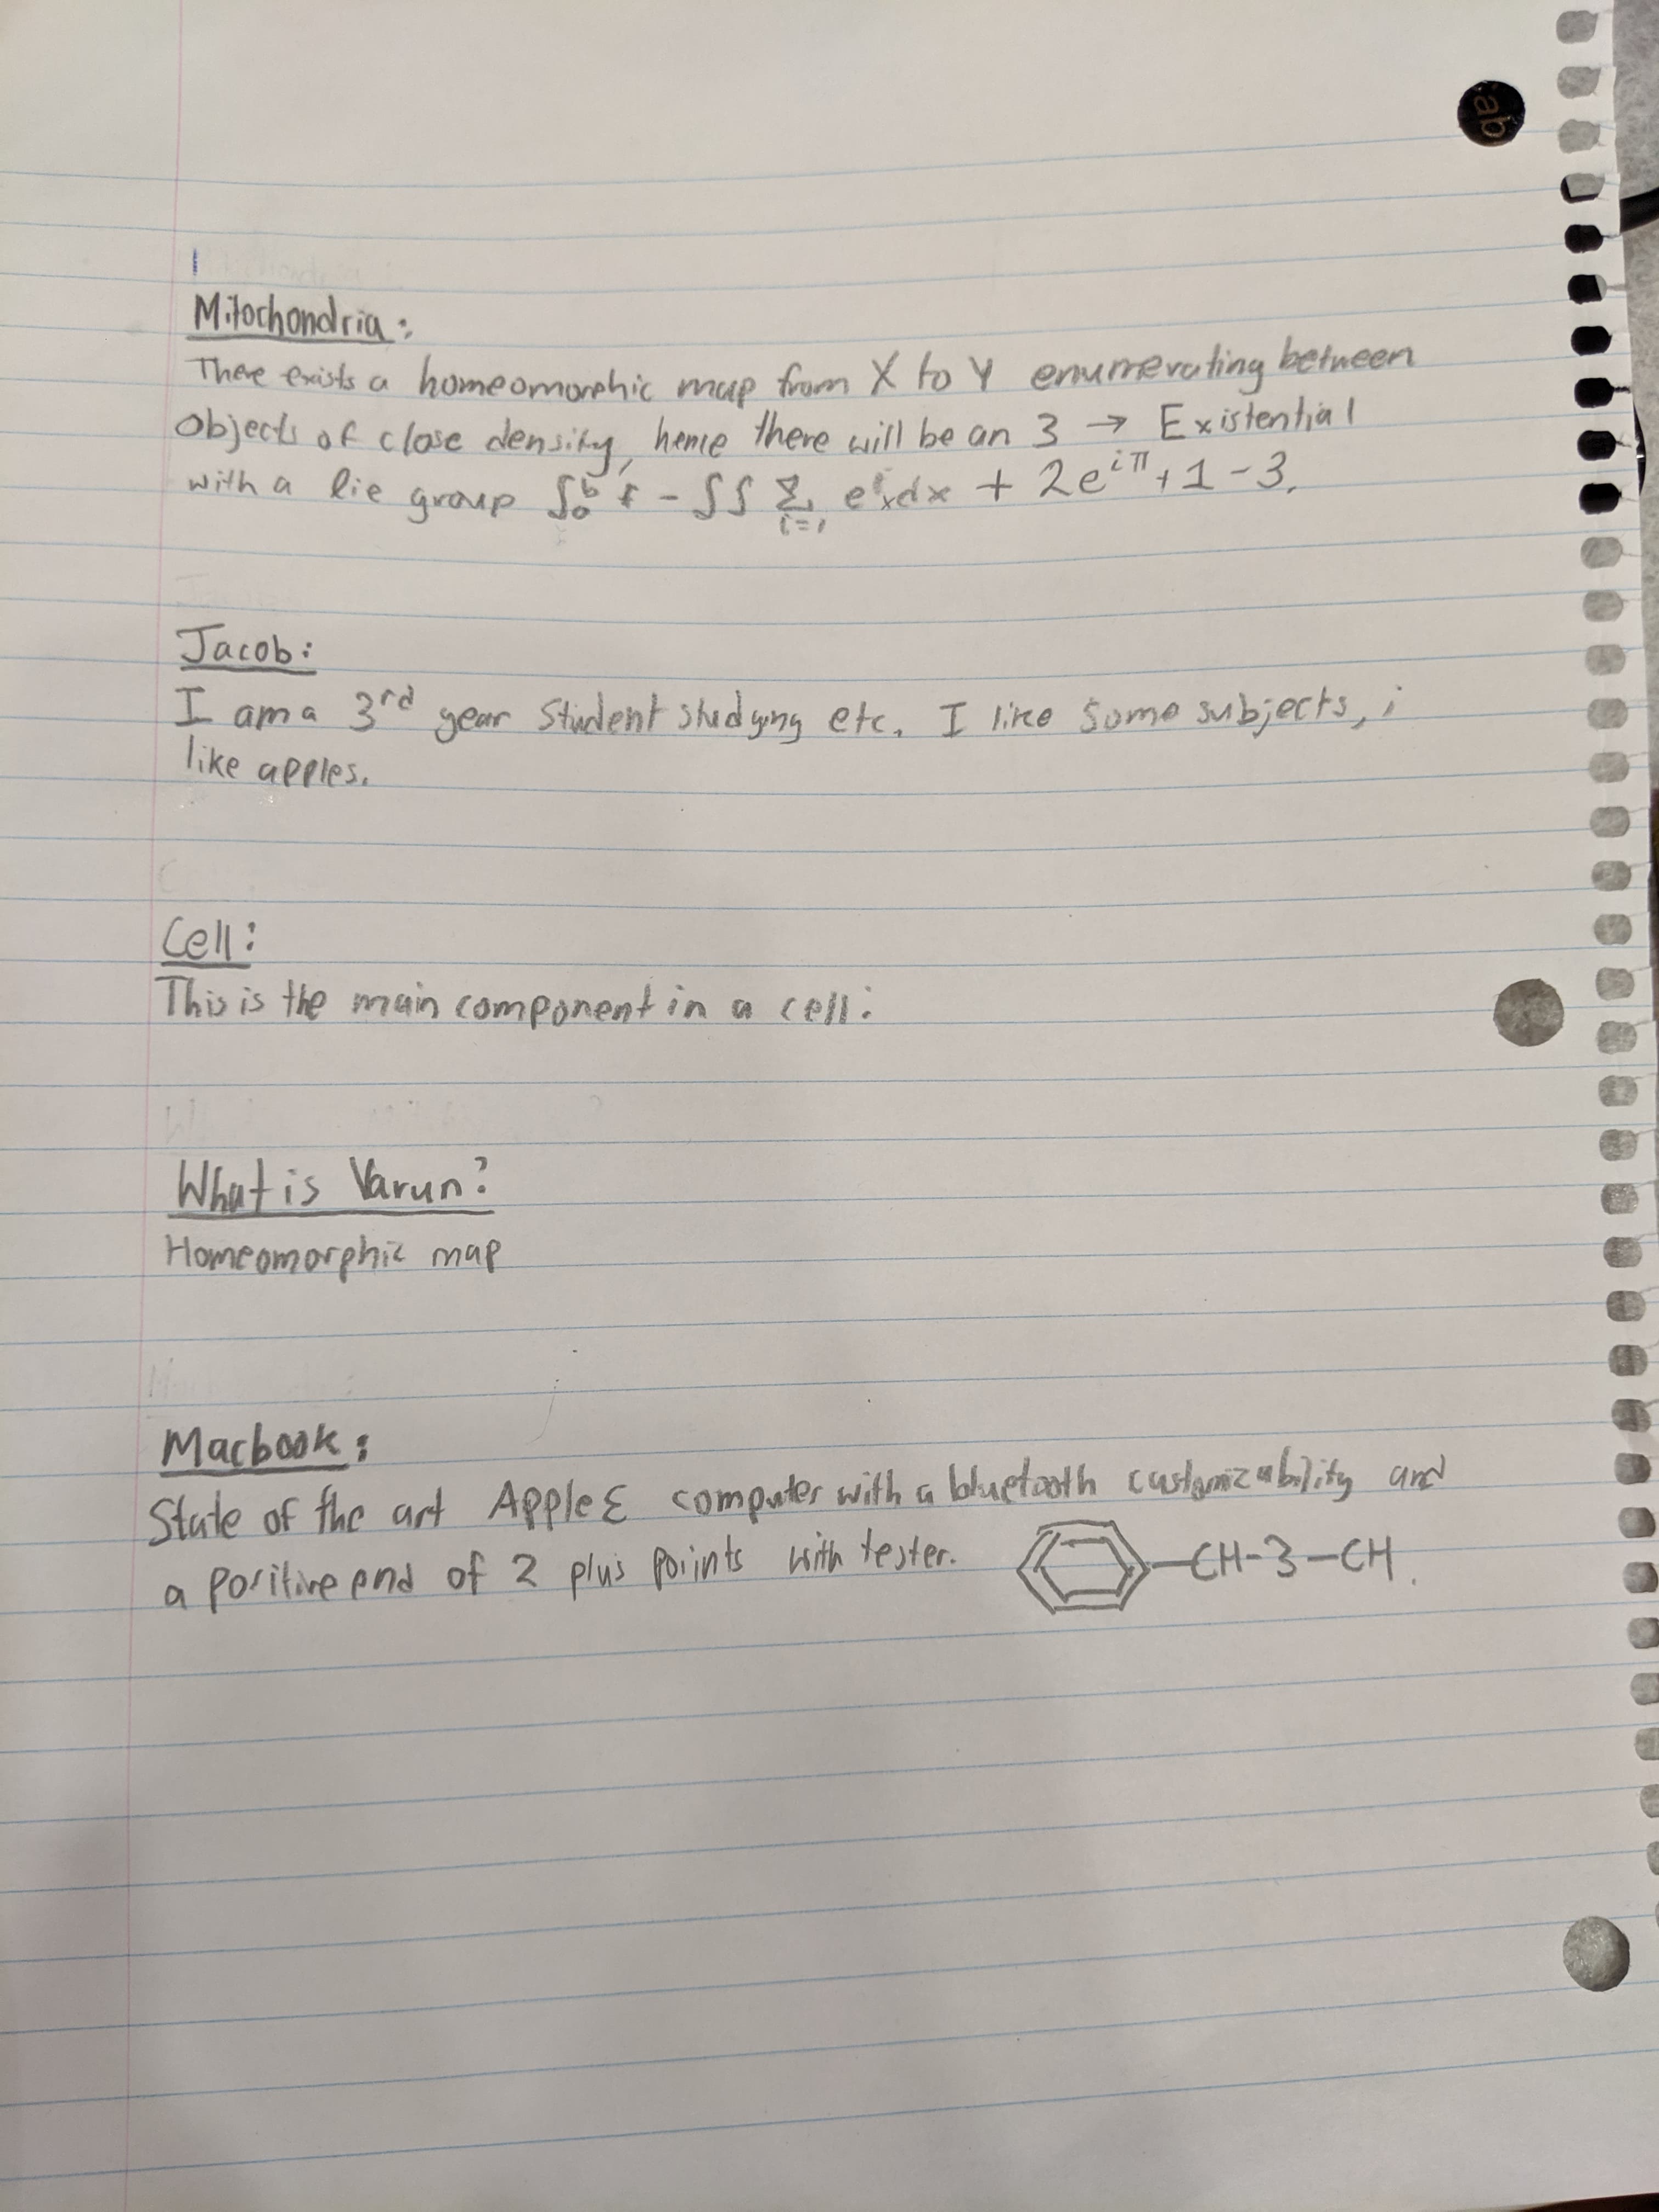 ab
Mitochondria:
There exists a homeomorphic map from X to Y enumerating between
Objects of close density, hence there will be an 3 → Existential
with a lie group ∫₀ᵇ f - ∫∫ Σ i=1 eⁱₓdx + 2e^iπ + 1 - 3.
Jacob:
I am a 3rd year Student studying etc. I like some subjects, i
like apples.
Cell:
This is the main component in a cell:
What is Varun?
Homeomorphic map
Macbook:
State of the art Apple Σ computer with a bluetooth customizability and
a positive end of 2 plus points with tester. -CH-3-CH.